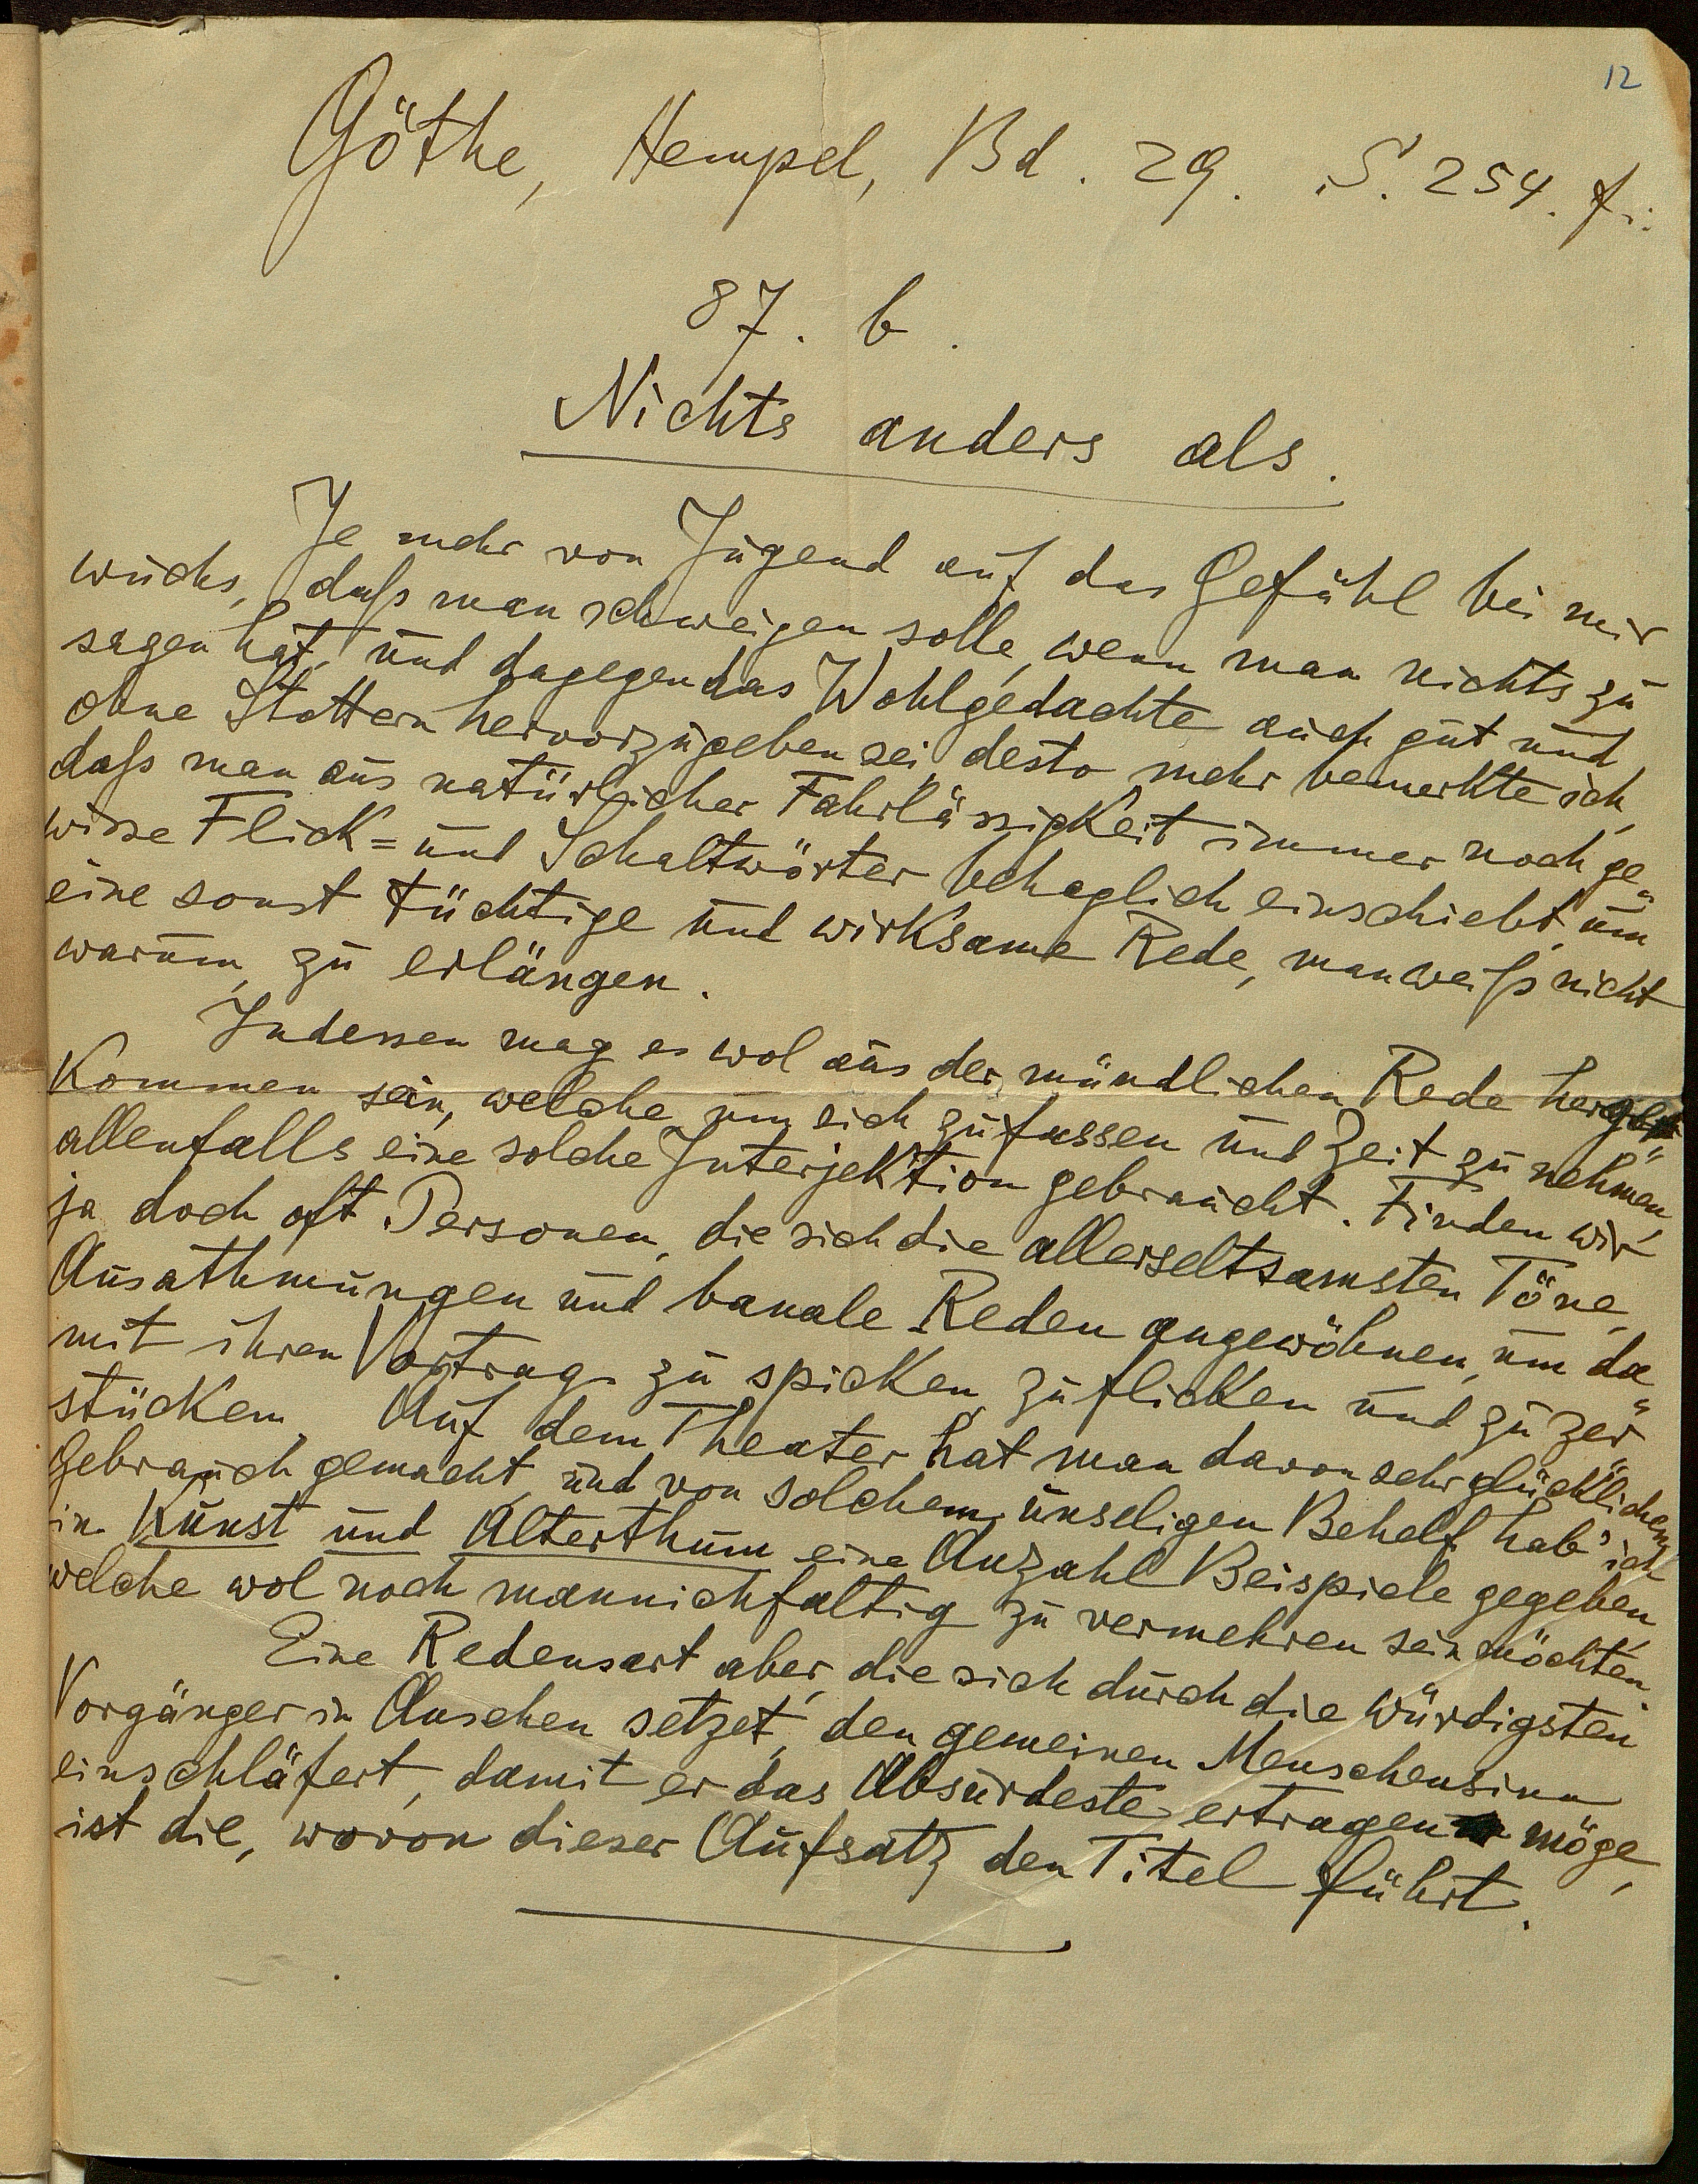 12
Göthe, Hempel, Bd. 29. S. 254. f.:
87. b.
Nichts anders als.
Je mehr von Jugend auf das Gefühl bei mir
wuchs, daß man schweigen solle, wenn man nichts zu
sagen hat, und dagegen das Wohlgedachte auch gut und
ohne Stottern hervorzugeben sei, desto mehr bemerkte ich,
daß man aus natürlicher Fahrlässigkeit immer noch ge-
wisse Flick= und Schaltwörter behaglich einschiebt, um
eine sonst tüchtige und wirksame Rede, man weiß nicht
warum, zu erlängen.
Indessen mag es wol aus der mündlichen Rede herge-
kommen sein, welche um sich zu fassen und Zeit zu nehmen,
allenfalls eine solche Interjektion gebraucht. Finden wir
ja doch oft Personen, die sich die allerseltsamsten Töne,
Ausathmungen und banale Reden angewöhnen, um da-
mit ihren Vortrag zu spicken, zu flicken und zu zer-
stücken. Auf dem Theater hat man davon sehr glücklichen
Gebrauch gemacht, und von solchem unseligen Behelf hab' ich
in Kunst und Alterthum eine Anzahl Beispiele gegeben,
welche wol noch mannichfaltig zu vermehren sein möchten.
Eine Redensart aber, die sich durch die würdigsten
Vorgänger in Ansehen setzet, den gemeinen Menschensinn
einschläfert, damit er das Absurdeste ertragen möge,
ist die, wovon dieser Aufsatz den Titel führt.